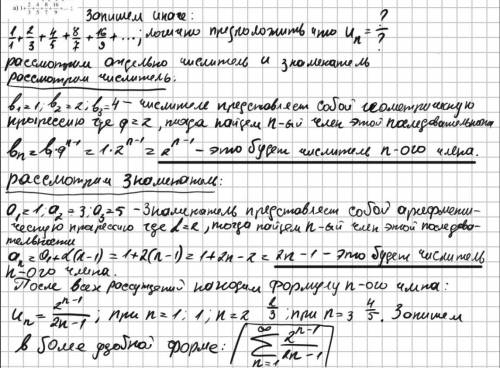 а) 1+2/3+4/5+8/7+16/9+...;
Запишем иначе:
1/1+2/3+4/5+8/7+16/9+...; логично предположить что Uₙ=?/?
рассмотрим отдельно числитель и знаменатель
рассмотрим числитель:
b₁=1; b₂=2; b₃=4 – числитель представляет собой геометрическую
прогрессию где q=2, тогда найдем n-ый член этой последовательности
bₙ=b₁·qⁿ⁻¹=1·2ⁿ⁻¹=2ⁿ⁻¹ – это будет числитель n-ого члена.
рассмотрим знаменатель:
a₁=1; a₂=3; a₃=5 – знаменатель представляет собой арифмети-
ческую прогрессию где d=2, тогда найдем n-ый член этой последова-
тельности
aₙ=a₁+d(n-1)=1+2(n-1)=1+2n-2=2n-1 – это будет числитель
n-ого члена.
После всех рассуждений находим формулу n-ого члена:
Uₙ=2ⁿ⁻¹/(2n-1); при n=1; 1; n=2 2/3; при n=3 4/5. Запишем
в более удобной форме: ∑_{n=1}^{∞} 2ⁿ⁻¹/(2n-1)